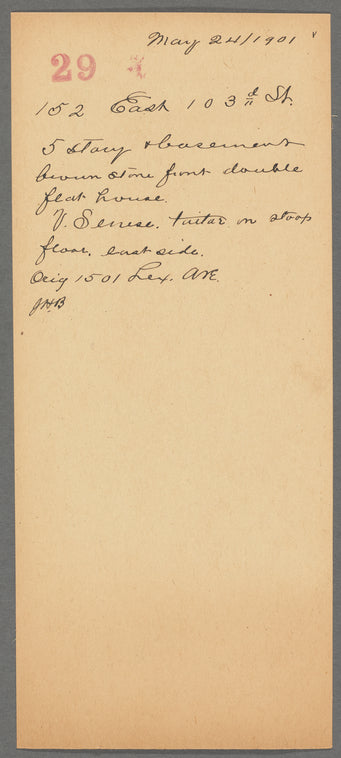 May 24/1901
29
152 East 103d St.
5 story & basement
brown stone front double
flat house.
V. Senese. tailor on stoop
floor, east side.
Orig 1501 Lex. Ave.
JHB